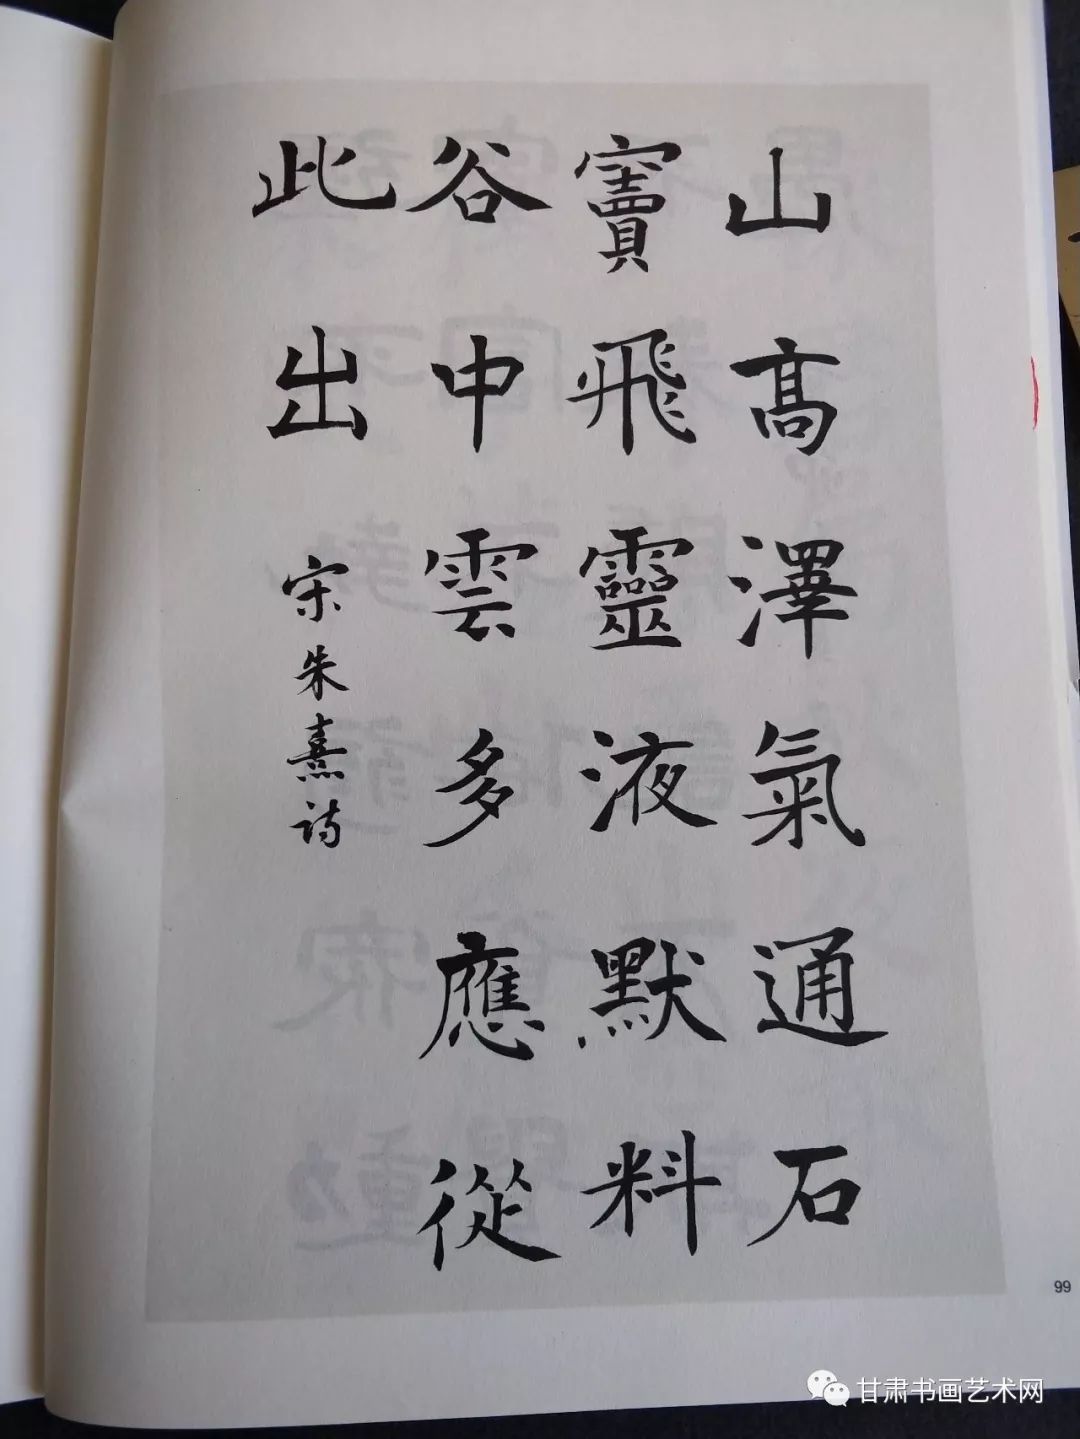 山髙澤氣通石
竇飛靈液默料
谷中雲多應從
此出
宋朱熹詩
99
甘肃书画艺术网